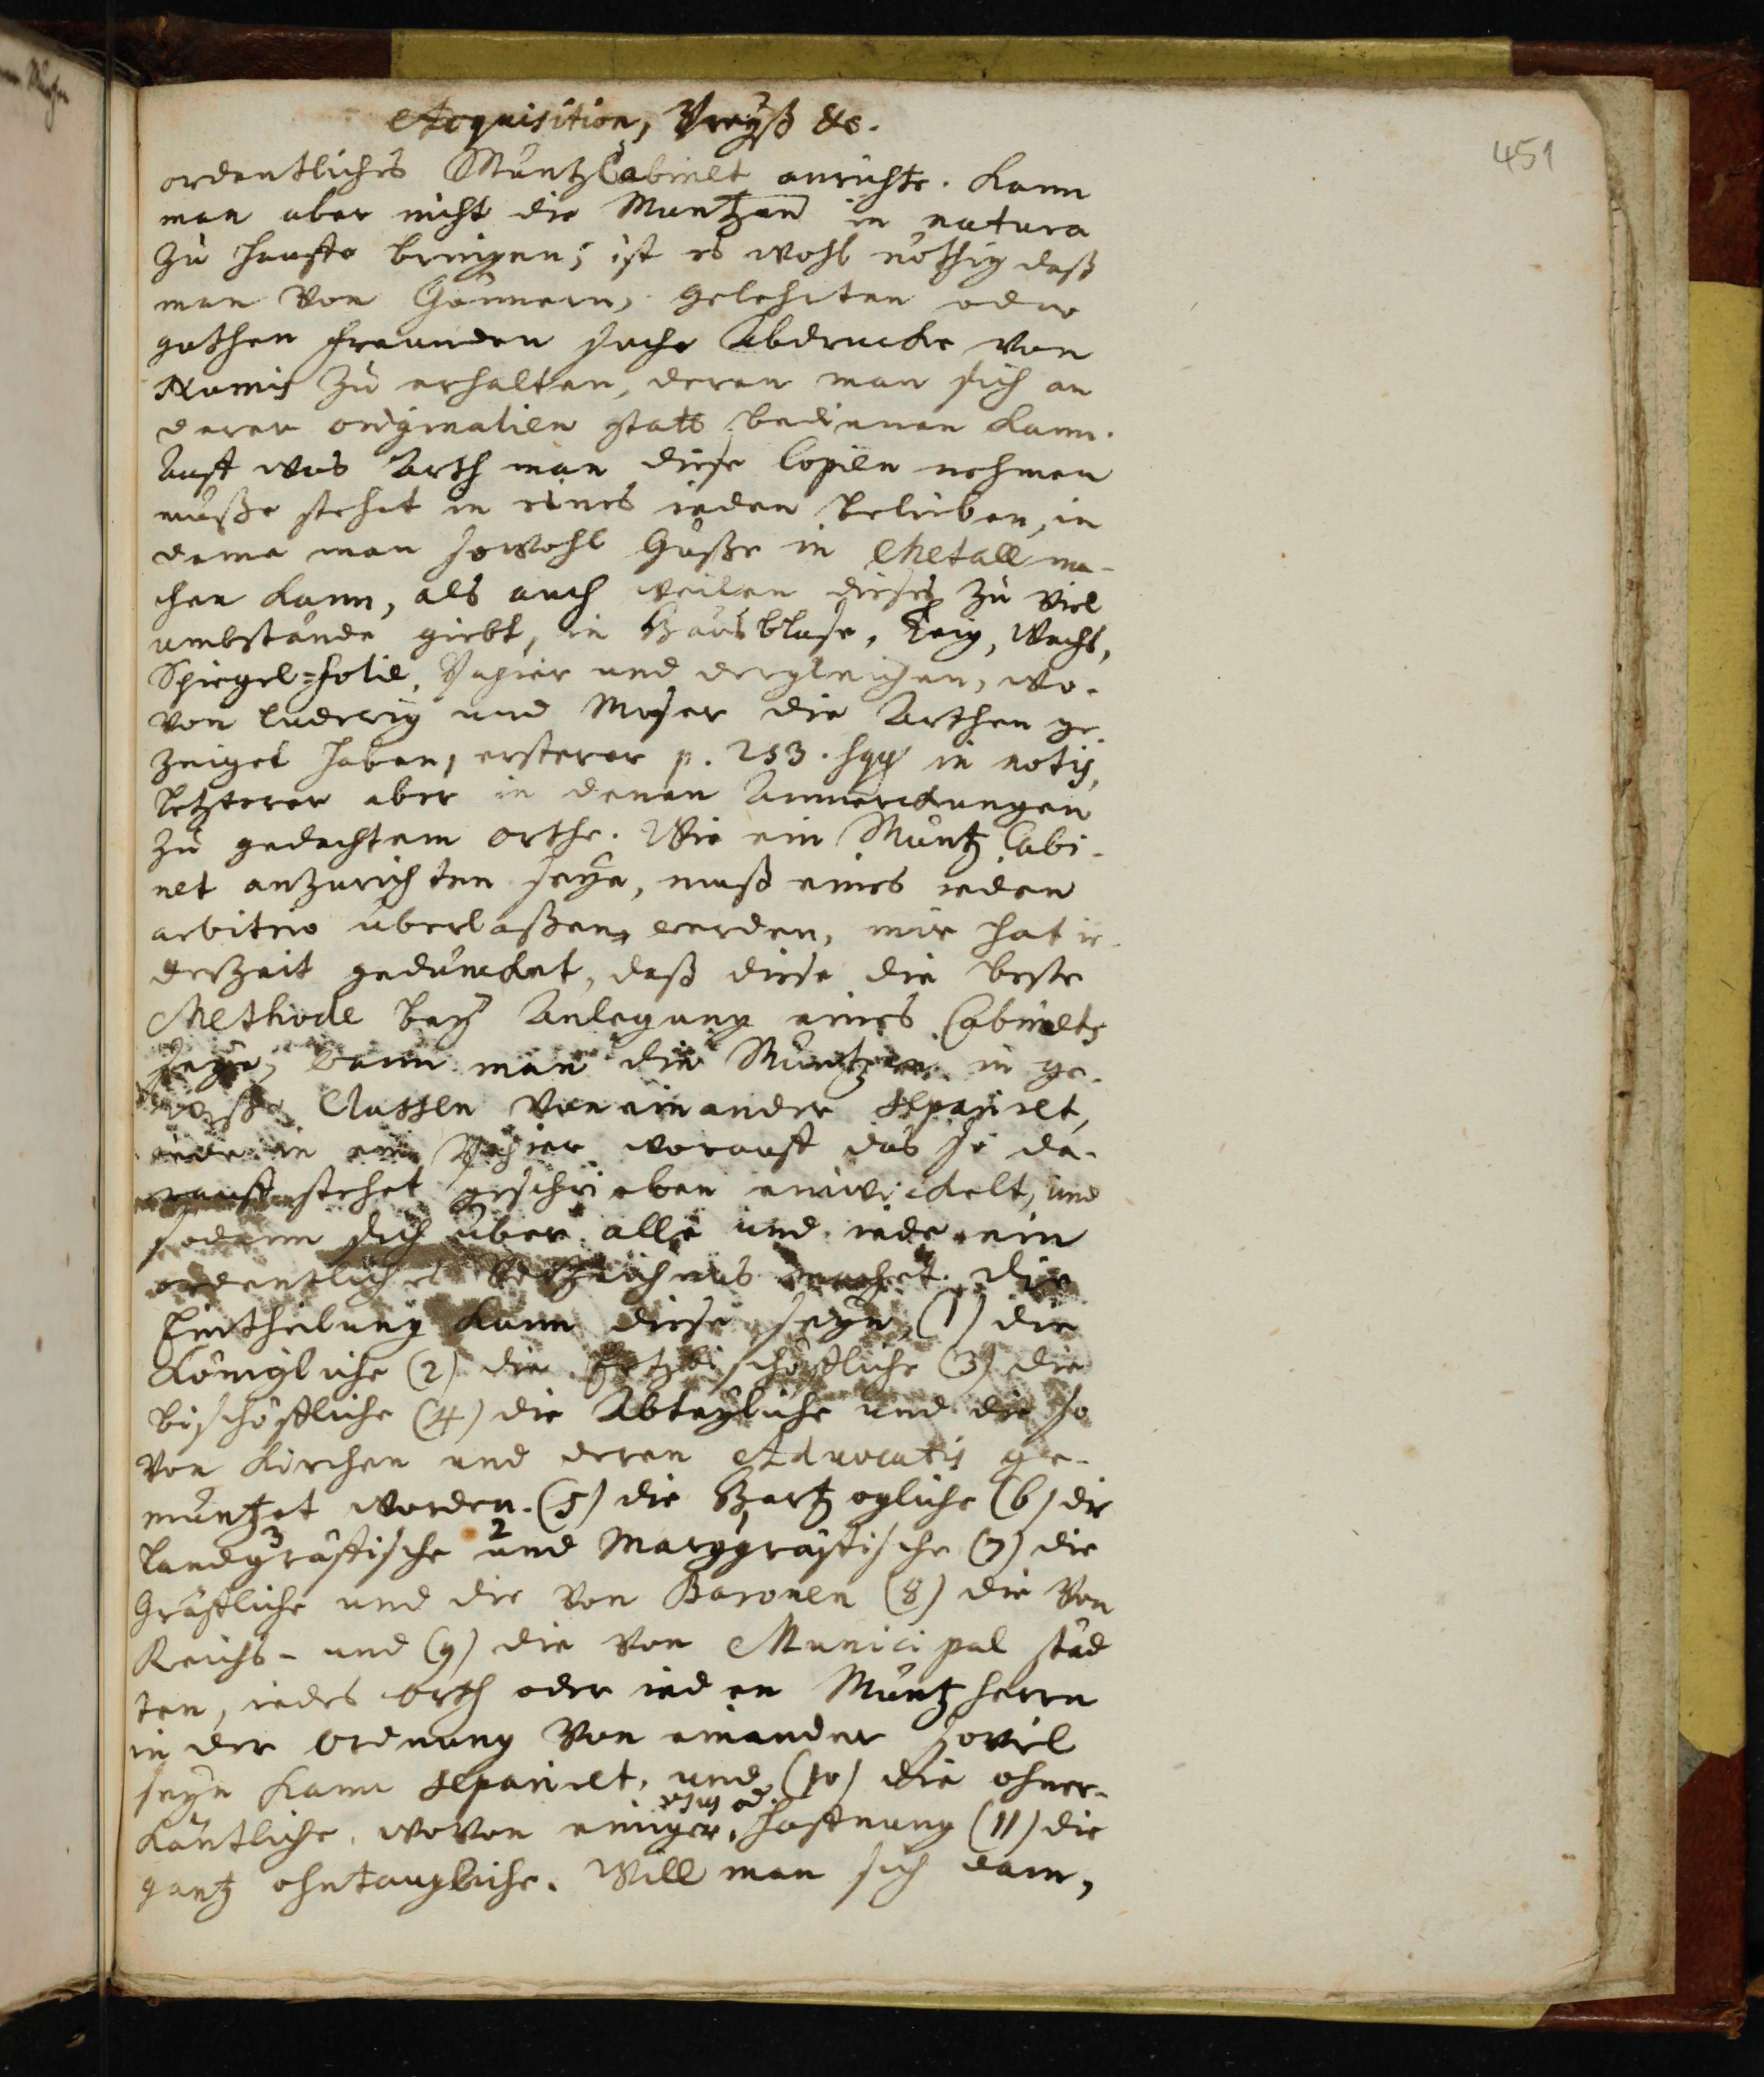 Acquisition, Preyß &c.
451
ordentliches Müntz Cabinet anrichte. Kann
man aber nicht die Muntzen in natura
zu Hauffe bringen; ist es wohl nöthig daß
man von Gönnern, gelehrten oder
guthen Freunden suche Abdrucke von
Numis zu erhalten, deren man sich an
derer originalien statt bedienen kann.
Auff was Arth man diese Copien nehmen
müße stehet in eines ieden belieben, in
deme man sowohl Güße in Metall ma-
chen kann, als auch weilen dieses zu viel
umbstände giebt, in Hausblase, Teig, Wachs,
Spiegel=folie, Papier und dergleichen, wo-
von Ludewig und Moser die Arthen ge-
zeiget haben, ersterer p. 253. sqq in notis,
letzterer aber in denen Anmerckungen
zu gedachtem orthe. Wie ein Müntz Cabi-
net anzurichten seye, muß eines ieden
arbitrio überlaßen werden, mir hat ie-
derzeit gedüncket, daß diese die beste
Methode bey Anlegung eines Cabinets
seye, wann man die Müntzen in ge-
wiße Classen von einander separiret,
iede in ein Papier worauff das so da-
rauff stehet geschrieben einwickelt, und
sodann sich über alle und iede ein
ordentliches Verzeichnis machet. Die
Eintheilung kann diese seyn, (1) die
Königliche (2) die Ertzbischöffliche (3) die
bischöffliche (4) die Abteyliche und die so
von Kirchen und deren Advocatis ge-
müntzet worden. (5) die Hertzogliche (6) die
3 2
Landgräffische und Marggräffische (7) die
Gräffliche und die von Baronen (8) die von
Reichs- und (9) die von Municipal städ
ten, iedes orth oder ieden Müntzherrn
in der Ordnung von einander soviel
seyn kann separiret, und (10) die ohner-
käntliche, wovon einiger Hoffnung (11) die
gantz ohntaugliche. Will man sich dann,